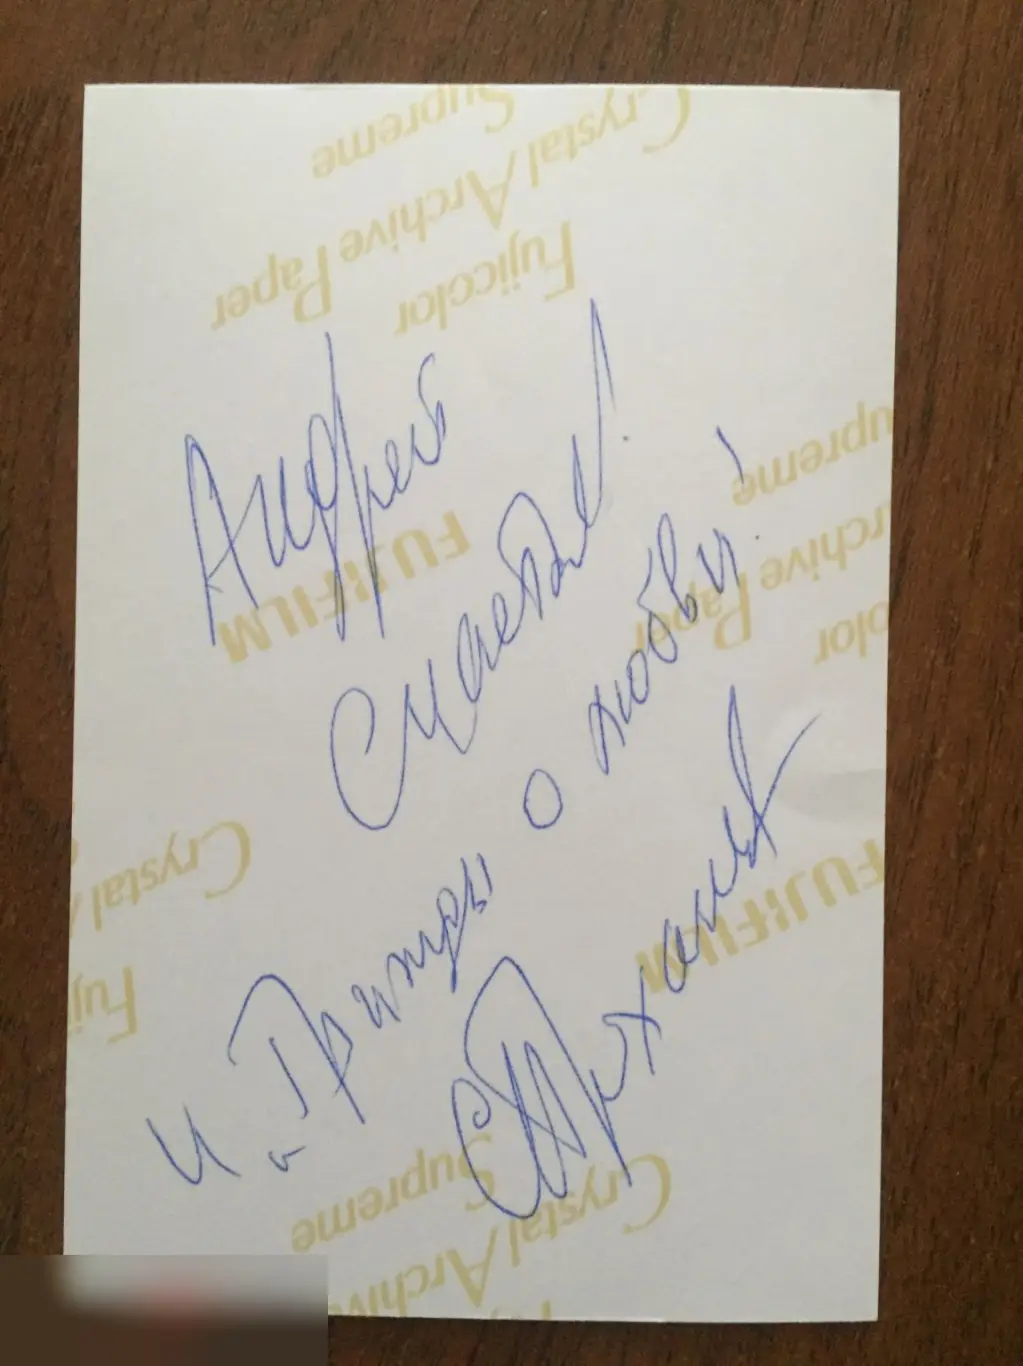 Fujicolor
Crystal Archive Paper
Supreme
Андрей
Счастья!
и о любви!
FUJIFILM
Fujicolor
Archive Paper
Supreme
FUJIFILM
Crystal
Fuji
Crystal Archive
Supreme